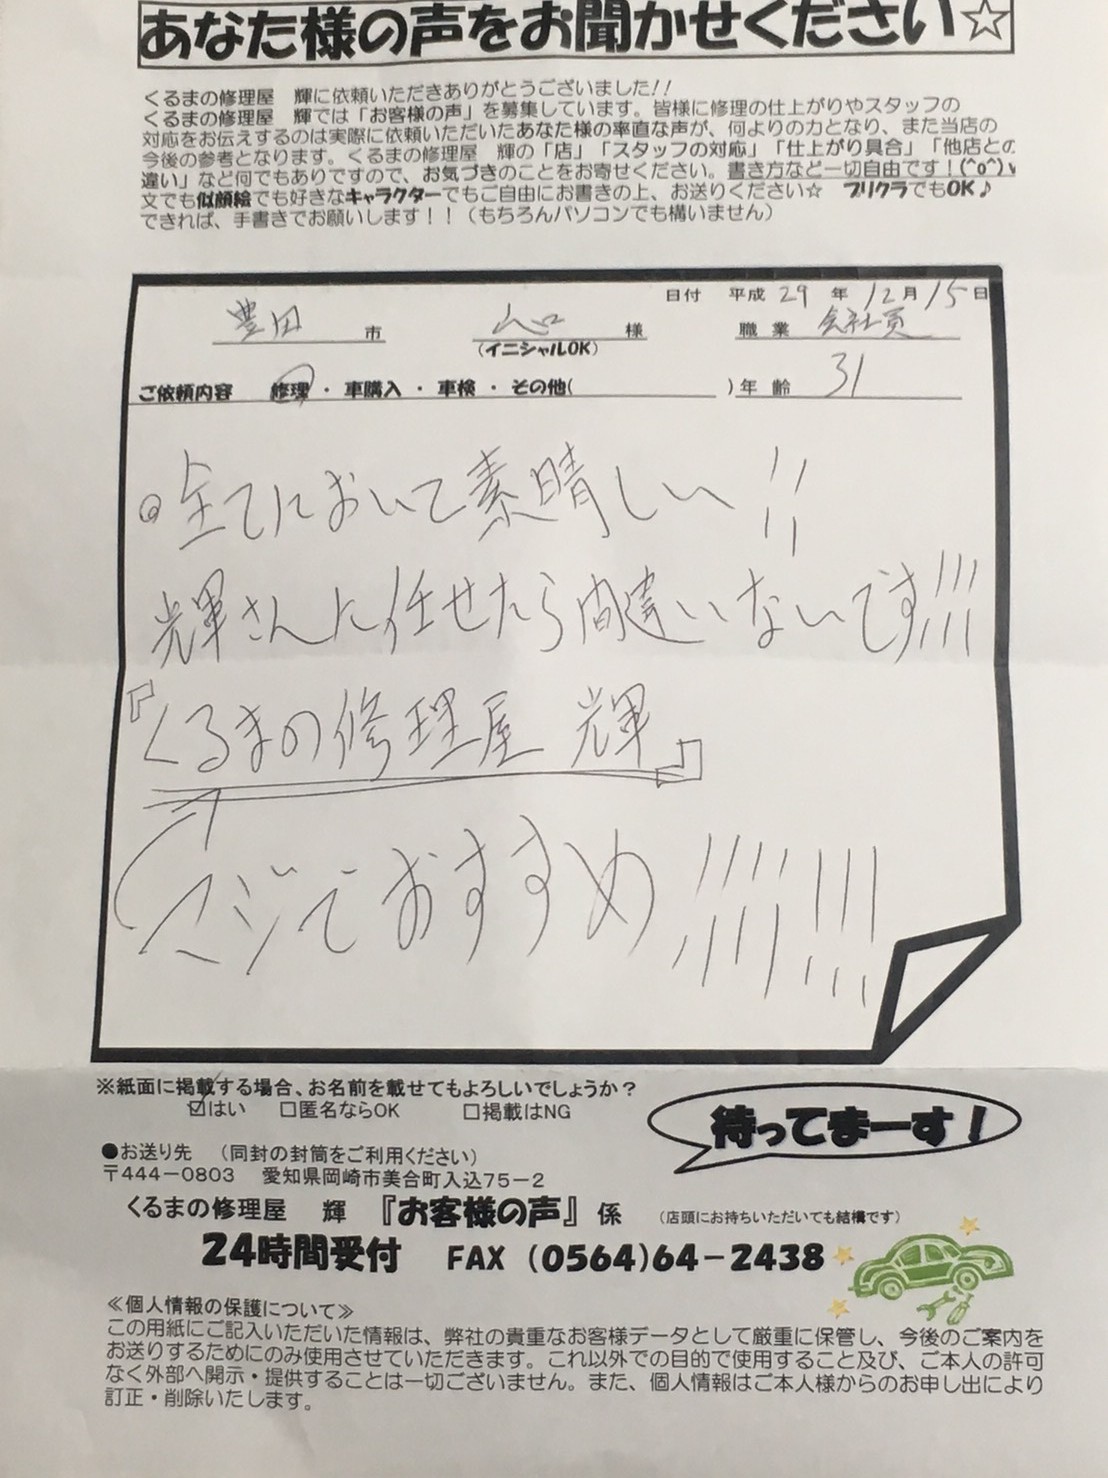 あなた様の声をお聞かせください☆
くるまの修理屋　輝に依頼いただきありがとうございました!!
くるまの修理屋　輝では「お客様の声」を募集しています。皆様に修理の仕上がりやスタッフの
対応をお伝えするのは実際に依頼いただいたあなた様の率直な声が、何よりの力となり、また当店の
今後の参考となります。くるまの修理屋　輝の「店」「スタッフの対応」「仕上がり具合」「他店との
違い」など何でもありですので、お気づきのことをお寄せください。書き方など一切自由です！(^o^)v
文でも似顔絵でも好きなキャラクターでもご自由にお書きの上、お送りください☆　プリクラでもOK♪
できれば、手書きでお願いします！！（もちろんパソコンでも構いません）
日付　平成 29 年 12月 15日
豊田 市　様　職業 会社員
(イニシャルOK)
ご依頼内容　修理・車購入・車検・その他(　)年齢 31
◎全てにおいて素晴しい!!
輝さんに任せたら間違いないです!!!
『くるまの修理屋 輝』
マジでおすすめ!!!!!!!
※紙面に掲載する場合、お名前を載せてもよろしいでしょうか？
☑はい　□匿名ならOK　□掲載はNG
待ってまーす！
●お送り先　（同封の封筒をご利用ください）
〒444－0803　愛知県岡崎市美合町入込75－2
くるまの修理屋　輝　『お客様の声』係　（店頭にお持ちいただいても結構です）
24時間受付　FAX（0564)64－2438
≪個人情報の保護について≫
この用紙にご記入いただいた情報は、弊社の貴重なお客様データとして厳重に保管し、今後のご案内を
お送りするためにのみ使用させていただきます。これ以外での目的で使用すること及び、ご本人の許可
なく外部へ開示・提供することは一切ございません。また、個人情報はご本人様からのお申し出により
訂正・削除いたします。